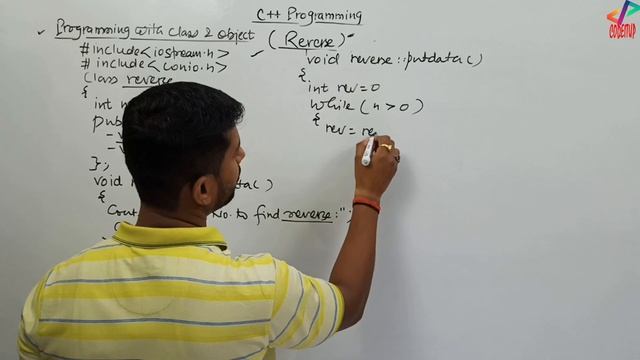 C++ Programming
CODEMUP
Programming with Class & Object
(Reverse)
#include<iostream.h>
#include<conio.h>
Class reverse
{
int
pub
};
void
{
No. to find reverse:";
void reverse::putdata()
{
int rev=0
While(n>0)
{
rev=re